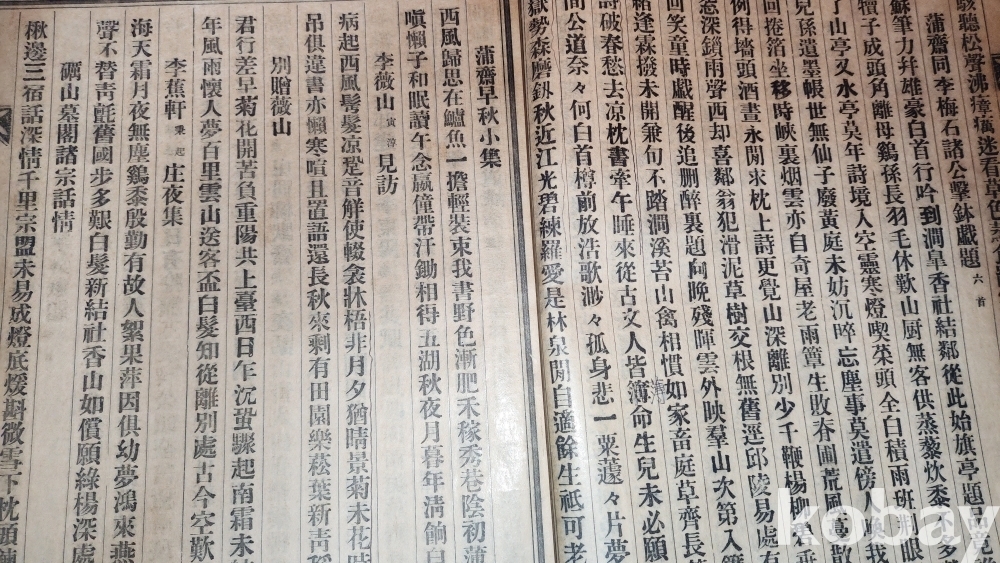 駭聽松聲沸瘴癘迷看草色
蒲齋同李梅石諸公擊鉢戱題 六首
蘇筆力幷雄豪白首行吟到澗臯香社結鄰從此始旗亭題品
犢子成頭角離母鷄孫長羽毛休歎山厨無客供蒸藜炊黍不多
了山亭又水亭莫年詩境入空靈寒燈喫菜頭全白積雨班荊眼
兒孫遺墨帳世無仙子廢黃庭未妨沉晬忘塵事莫遣傍人喚我
回捲箔坐移時峽裏烟雲亦自奇屋老雨蕈生敗脊圃荒風散
例得墻頭酒晝永閒求枕上詩更覺山深離別少千鞭楊柳君垂
窓深鎖雨聲西却喜鄰翁犯滑泥草樹交根無舊逕邱陵易處有
回笑童時戱醒後追刪醉裏題向晚殘暉雲外映羣山次第入簾
緒逢霖撥未開兼旬不踏澗溪苔山禽相慣如家畜庭草齊長
詩破春愁去凉枕書牽午睡來從古文人皆簿命生兒未必願
間公道奈々何白首樽前放浩歌渺々孤身悲一粟蘧々片夢
嶽勢森磨釼秋近江光碧練羅愛是林泉閒自適餘生祗可老
蒲齋早秋小集
西風歸思在鱸魚一擔輕裝束我書野色漸肥禾稼秀巷陰初薄
嗔懶子和眠讀午念嬴僮帶汗鋤相得五湖秋夜月暮年淸餉自
李薇山 寅淳 見訪
病起西風鬂髮凉跫音鮮使輟衾牀梧非月夕猶晴景菊未花時
吊俱違書亦懶寒喧且置語還長秋來剩有田園樂菘葉新靑
別贈薇山
君行差早菊花開苦負重陽共上臺西日乍沉蛩驟起南霜未
年風雨懷人夢百里雲山送客盃白髮知從離別處古今空歎
李蕉軒 秉起 庄夜集
海天霜月夜無塵鷄黍殷勤有故人絮果萍因俱幼夢鴻來燕
聲不替靑氈舊國步多艱白髮新結社香山如償願綠楊深處
礪山墓閣諸宗話情
楸邊三宿話深情千里宗盟未易成燈底煖斟微雪下枕頭